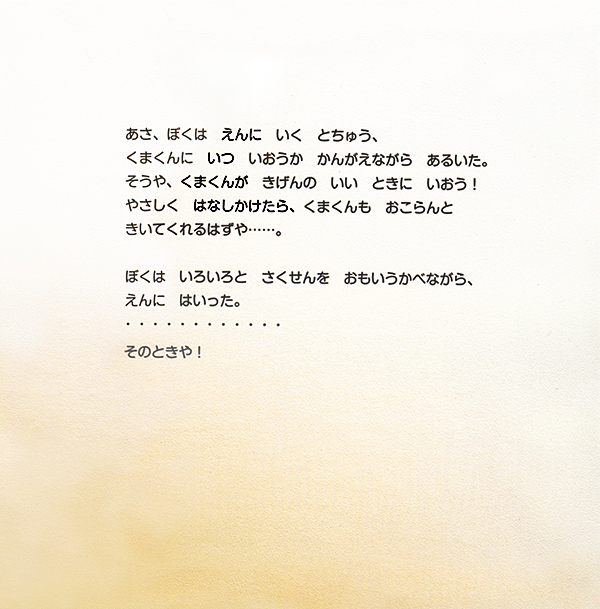 あさ、ぼくは　えんに　いく　とちゅう、
くまくんに　いつ　いおうか　かんがえながら　あるいた。
そうや、くまくんが　きげんの　いい　ときに　いおう！
やさしく　はなしかけたら、くまくんも　おこらんと
きいてくれるはずや……。
ぼくは　いろいろと　さくせんを　おもいうかべながら、
えんに　はいった。
・・・・・・・・・・・・
そのときや！